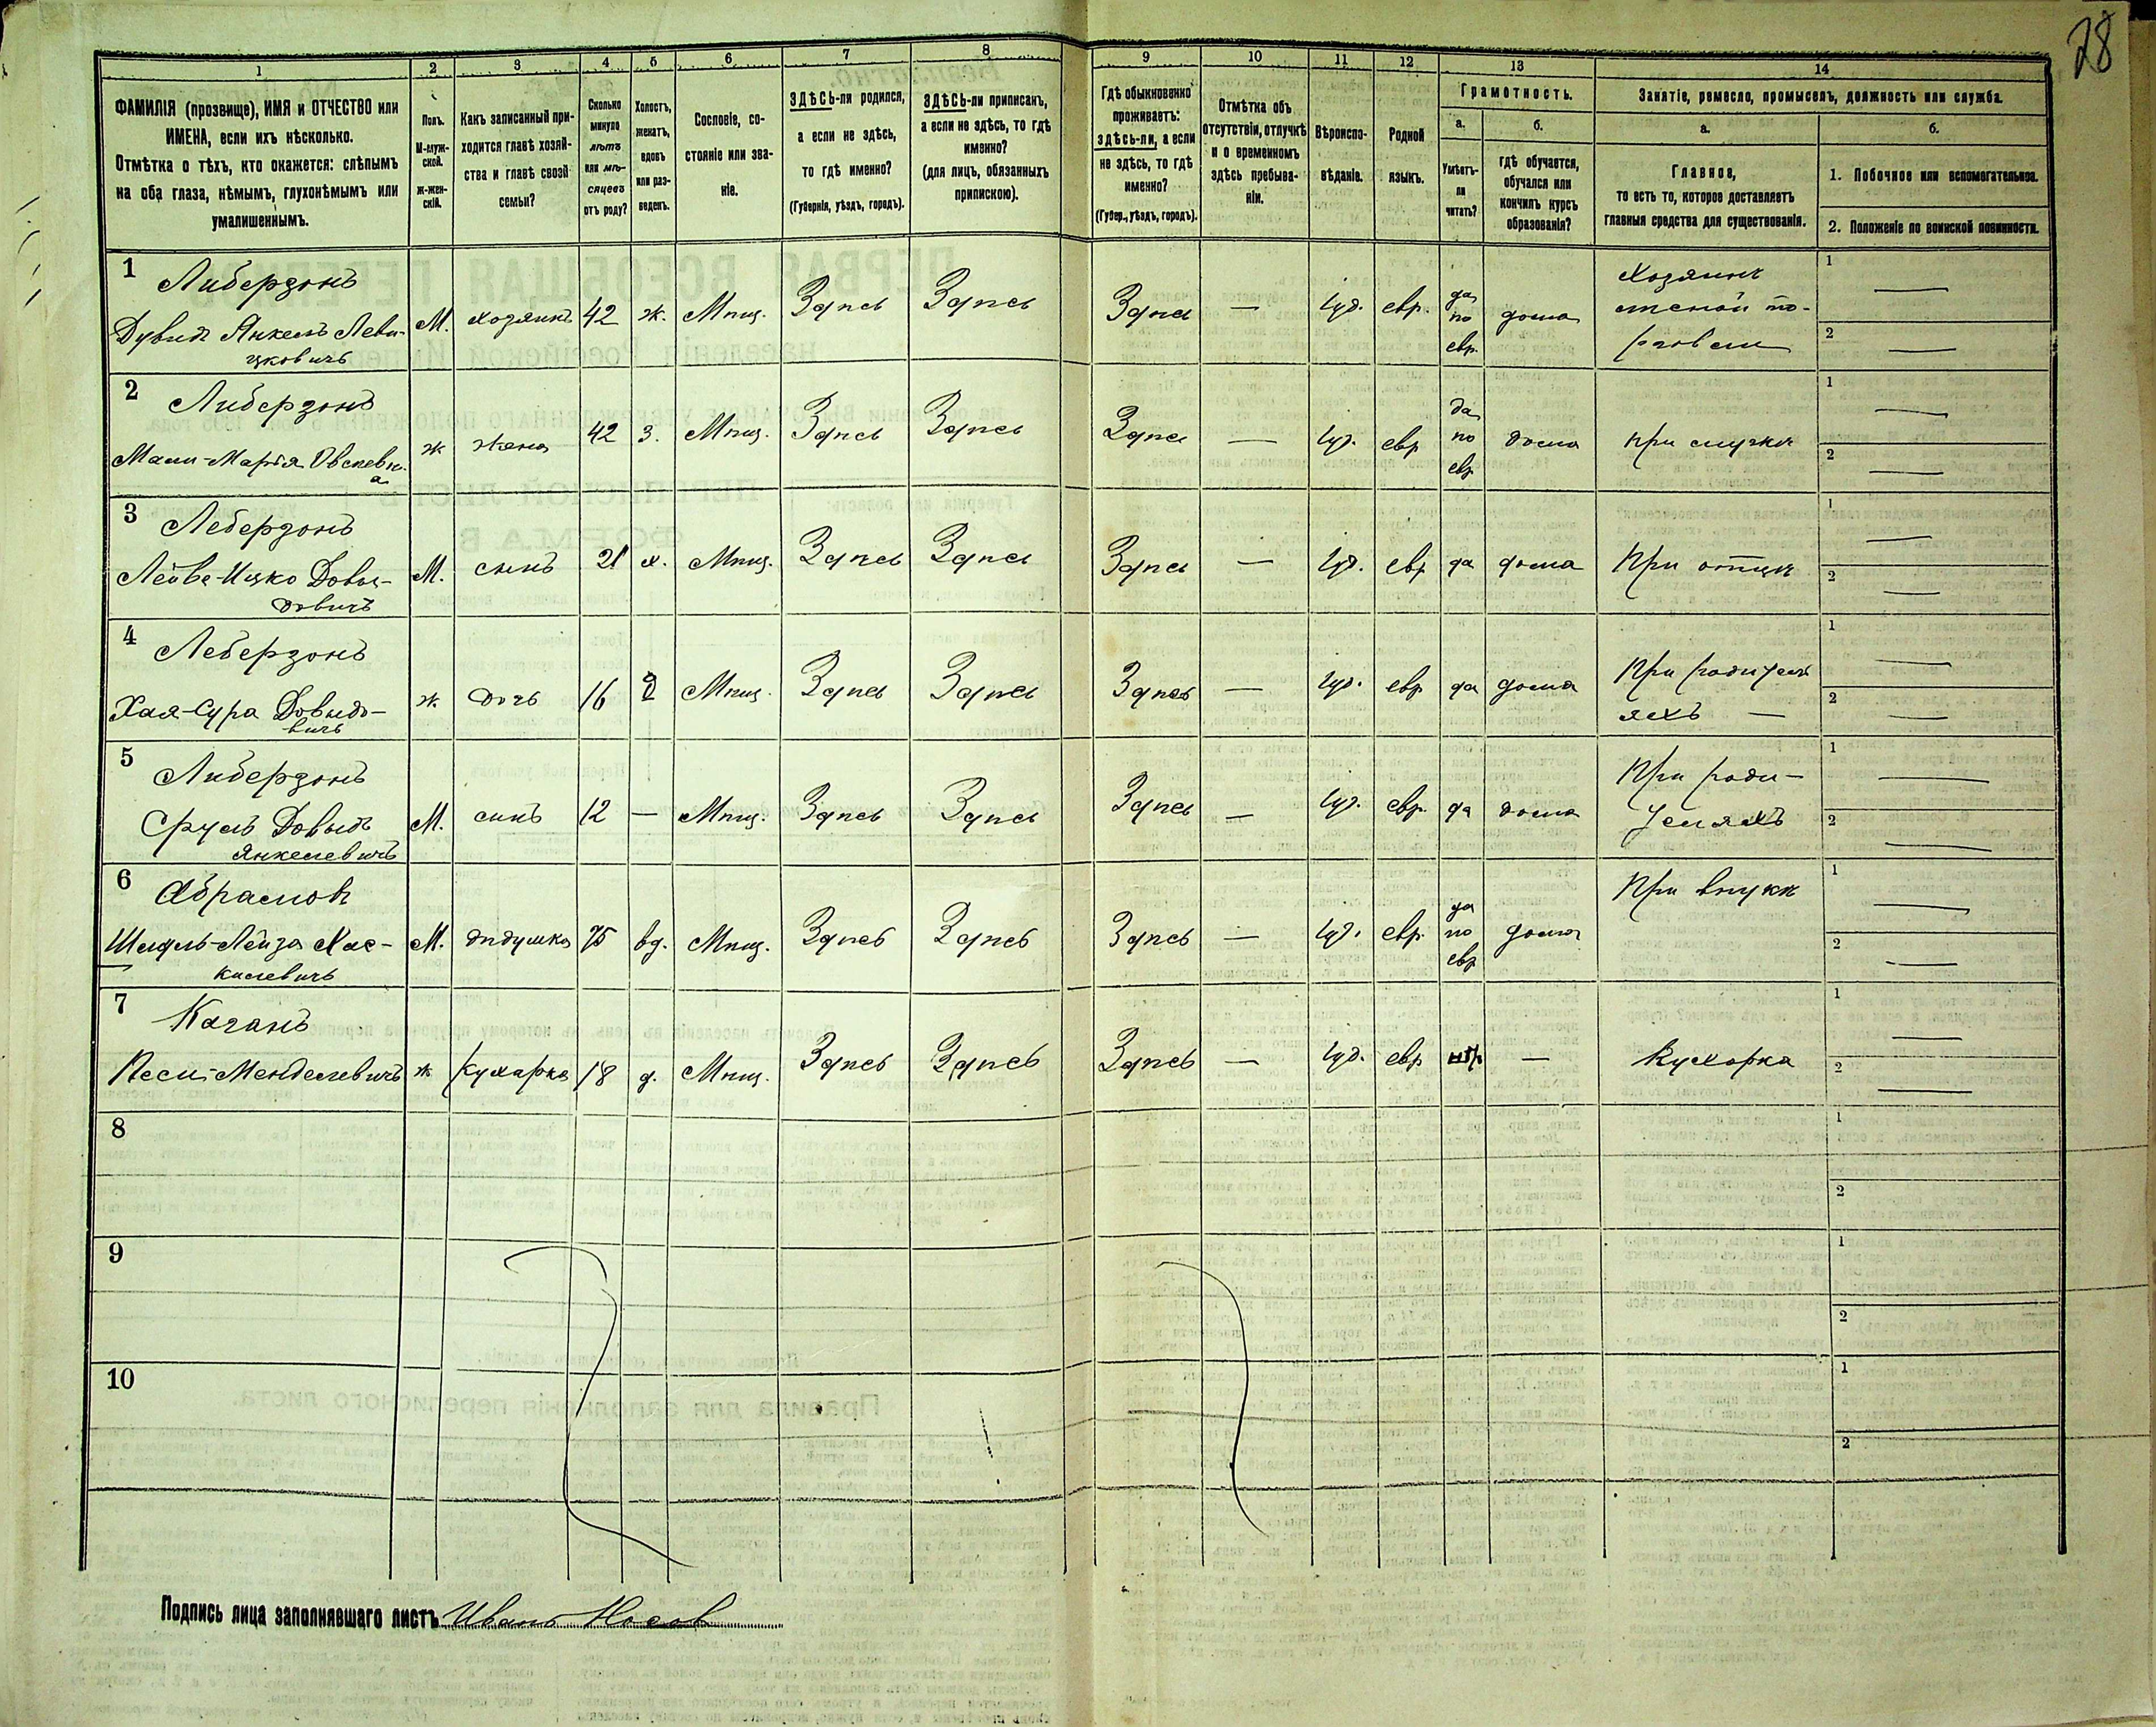 28
1 2 3 4 5 6 7 8 9 10 11 12 13 14
ФАМИЛІЯ (прозвище), ИМЯ и ОТЧЕСТВО или
ИМЕНА, если ихъ нѣсколько.
Отмѣтка о тѣхъ, кто окажется: слѣпымъ
на оба глаза, нѣмымъ, глухонѣмымъ или
умалишеннымъ.
Полъ.
М-муж-
ской.
ж-жен-
скій.
Какъ записанный при-
ходится главѣ хозяй-
ства и главѣ своей
семьи?
Сколько
минуло
лѣтъ
или мѣ-
сяцевъ
отъ роду?
Холостъ,
женатъ,
вдовъ
или раз-
веденъ.
Сословіе, со-
стояніе или зва-
ніе.
ЗДѢСЬ-ли родился,
а если не здѣсь,
то гдѣ именно?
(Губернія, уѣздъ, городъ).
ЗДѢСЬ-ли приписанъ,
а если не здѣсь, то гдѣ
именно?
(для лицъ, обязанныхъ
припискою).
Гдѣ обыкновенно
проживаетъ:
здѣсь-ли, а если
не здѣсь, то гдѣ
именно?
(Губер., уѣздъ, городъ).
Отмѣтка объ
отсутствіи, отлучкѣ
и о временномъ
здѣсь пребыва-
ніи.
Вѣроиспо-
вѣданіе.
Родной
языкъ.
Грамотность.
а.
Умѣетъ-
ли
читать?
б.
гдѣ обучается,
обучался или
кончилъ курсъ
образованія?
Занятіе, ремесло, промыселъ, должность или служба.
а.
Главное,
то есть то, которое доставляетъ
главныя средства для существованія.
б.
1. Побочное или вспомогательное.
2. Положеніе по воинской повинности.
1
Либерзонъ
Дувидъ Янкель Леви-
цковичъ
М. хозяинъ 42 ж. Мѣщ. Здѣсь Здѣсь Здѣсь — іуд. евр.
да
по
евр.
дома
Хозяинъ
мелкой то-
рговли
1 —
2 —
2
Либерзонъ
ж жена 42 з. Мѣщ. Здѣсь Здѣсь Здѣсь — іуд. евр
да
по
евр
дома
1 —
2 —
3
Леберзонъ
Лейва-Ицко Довы-
довичъ
М. сынъ 21 х. Мѣщ. Здѣсь Здѣсь Здѣсь — іуд. евр да дома При отцѣ
1 —
2 —
4
Леберзонъ
Хая-Сура Довыдо-
вичъ
ж. дочь 16 д Мѣщ. Здѣсь Здѣсь Здѣсь — іуд. евр да дома
При родител
яхъ —
1 —
2 —
5
Либерзонъ
Сруль Довыдъ
Янкелевичъ
М. сынъ 12 — Мѣщ. Здѣсь Здѣсь Здѣсь — іуд. евр. да дома
При роди-
теляхъ
1 —
2 —
6
Абрамовъ
Шмуль-Лейза Хас-
килевичъ
М. дѣдушка 75 вд. Мѣщ. Здѣсь Здѣсь Здѣсь — іуд. евр.
да
по
евр
дома
При внукѣ
1 —
2 —
7
Каганъ
Песи-Менделевичъ ж кухарка 18 д. Мѣщ. Здѣсь Здѣсь Здѣсь — іуд. евр — Кухарка
1 —
2 —
8
1
2
9
1
2
10
1
2
Подпись лица заполнявшаго листъ Иванъ Носов